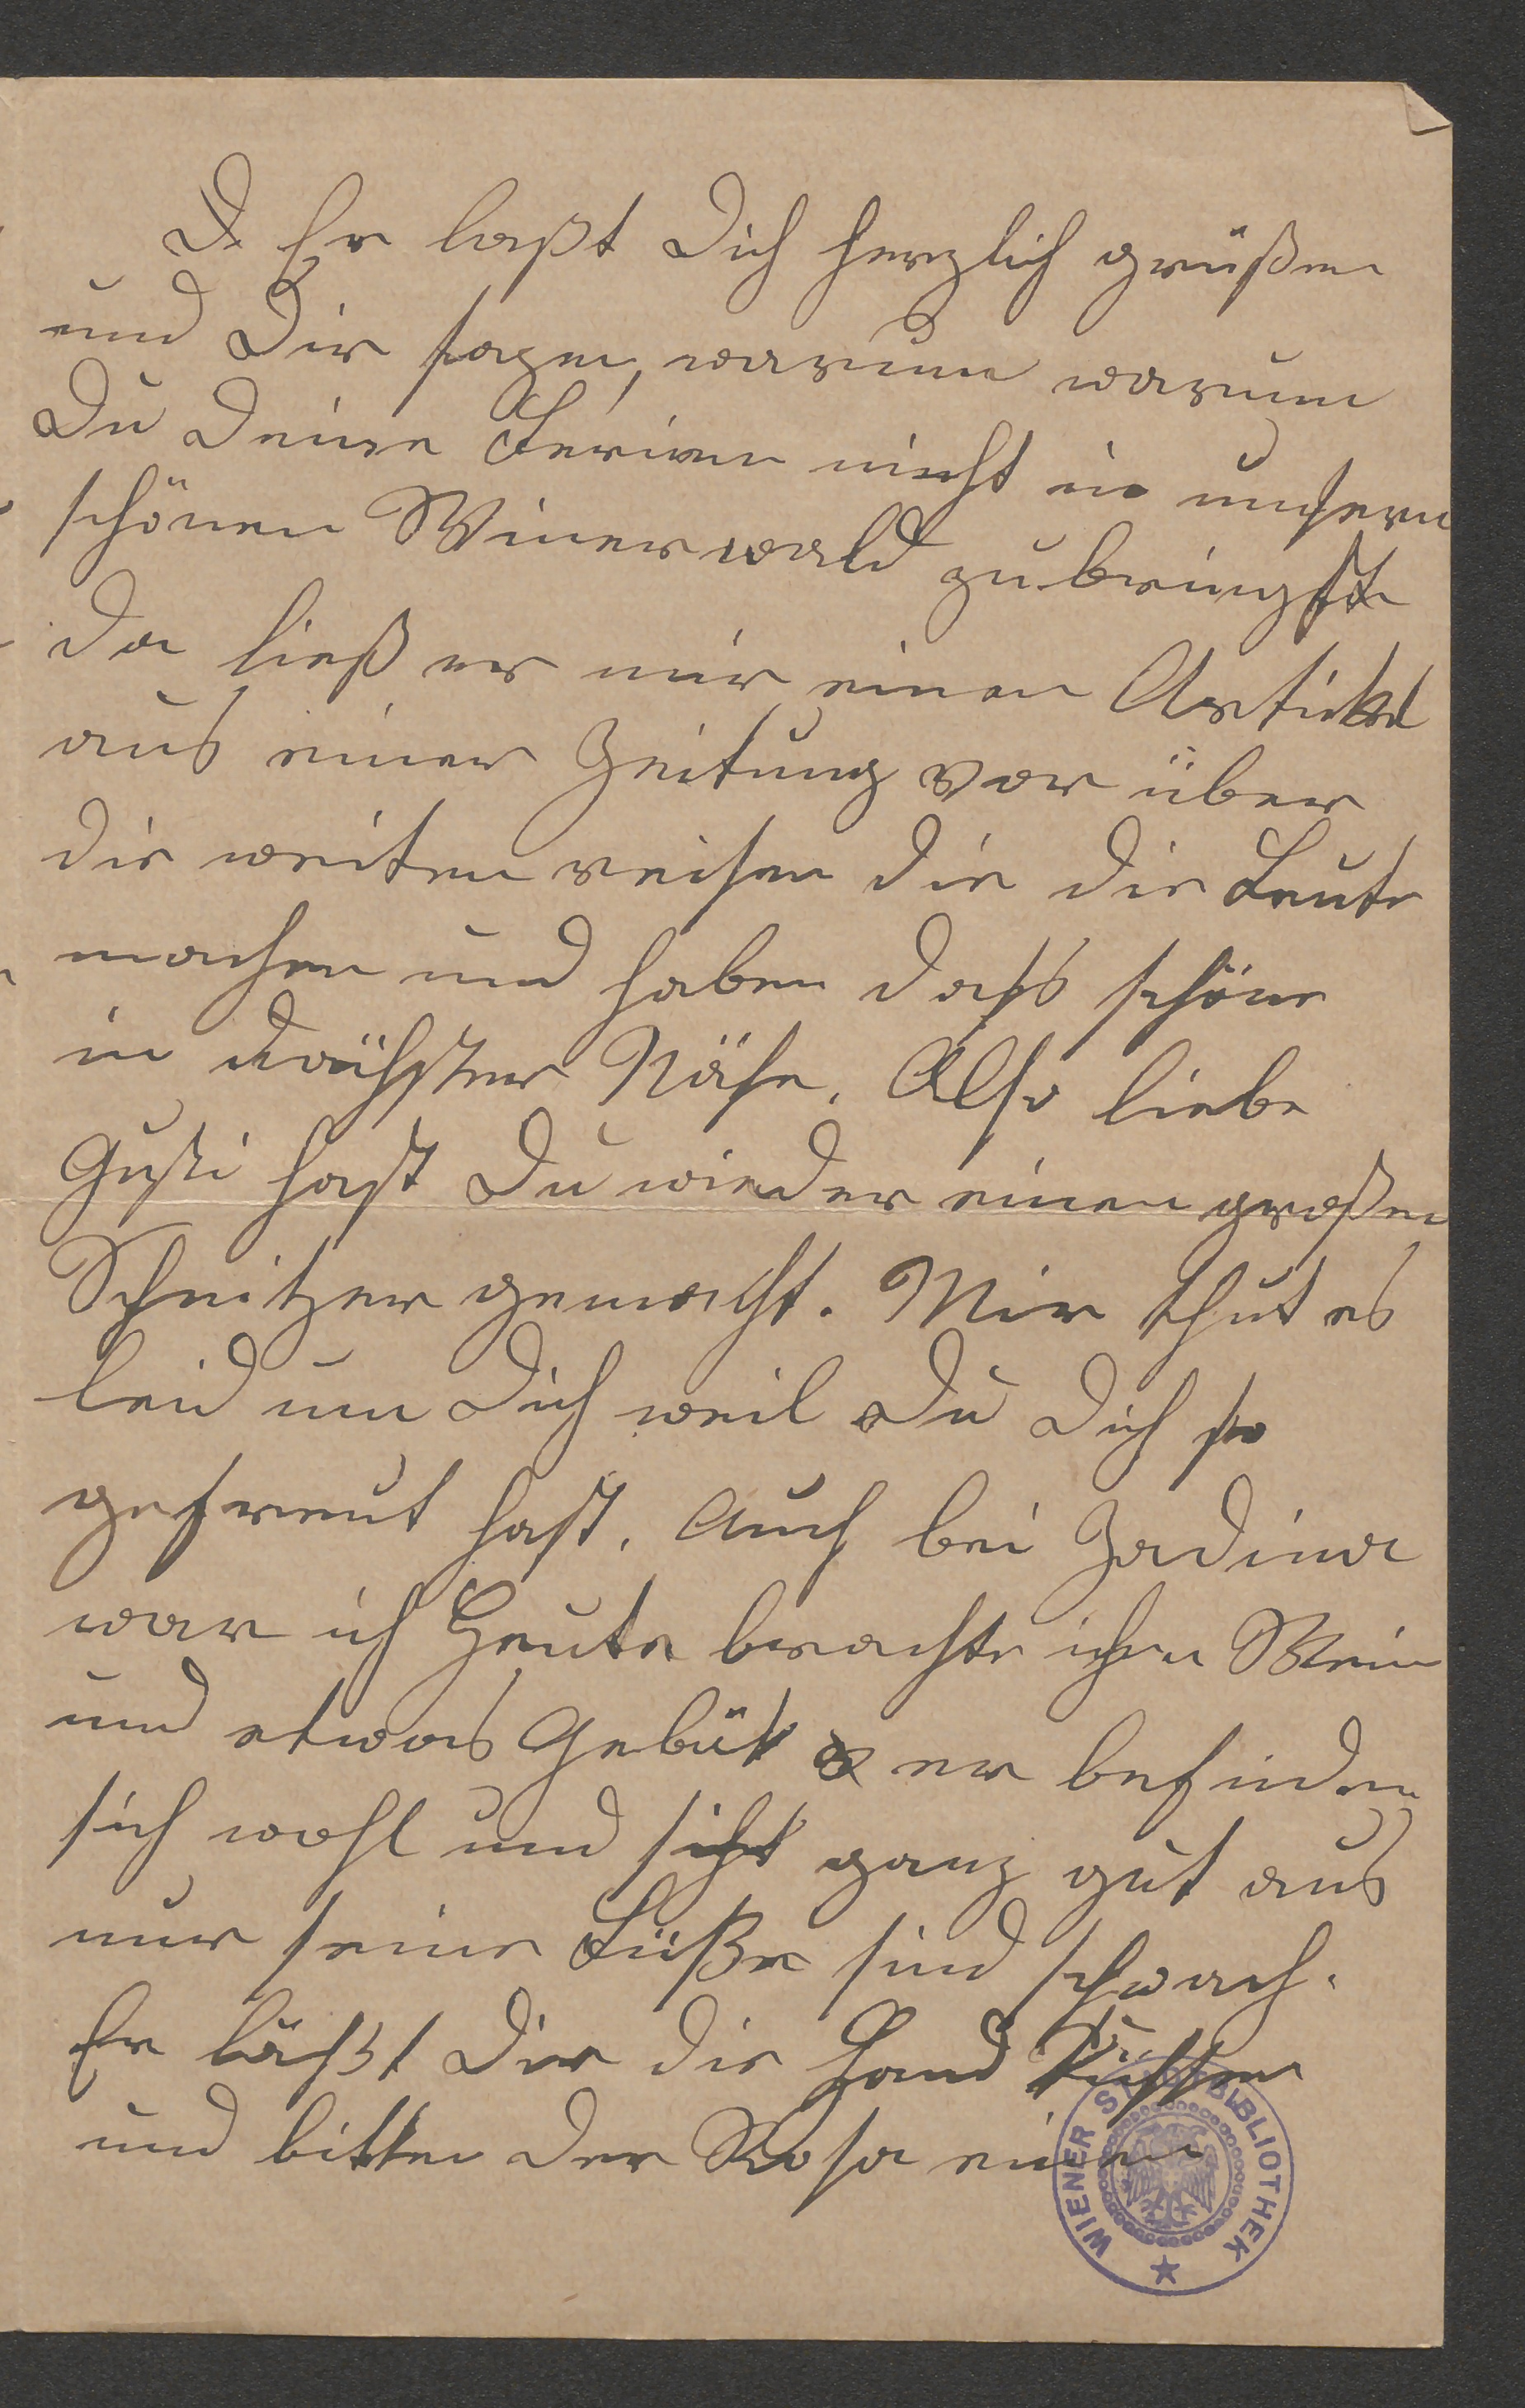 D. Er laßt Dich herzlich grüßen
und Dir sagen, warum warum
Du Deine Ferien nicht in unsern
schönen Winerwald zubringst
da ließ er mir einen Artickel
aus einer Zeitung vor über
die weiten reisen die die Leute
machen und haben dass schöne
in nächster Nähe. Also liebe
Gusti hast Du wieder einen großen
Schnitzer gemacht. Mir thut es
leid um Dich weil Du Dich so
gefreut hast. Auch bei Zadina
war ich Heute brachte ihm Wein
und etwas Gebäk er befinden
sich wohl und siht ganz gut aus
nur seine Füße sind schwach.
Er läßt Dir die Hand küssen
und bitten der Rosa einen
WIENER STADTBIBLIOTHEK